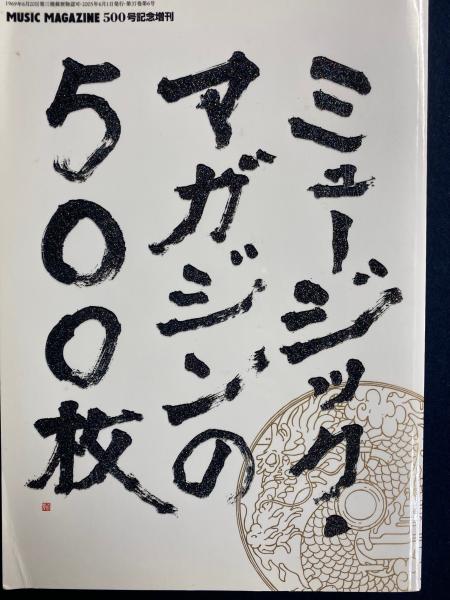 1969年6月20日第三種郵便物認可・2005年6月1日発行・第37巻第6号
MUSIC MAGAZINE 500号記念増刊
ミュージック・
マガジンの
500枚